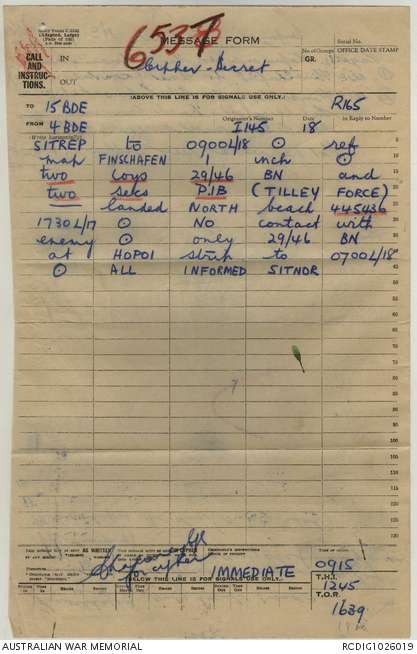 MESSAGE FORM
6537
Serial No.
CALL AND INSTRUCTIONS.
IN
OUT
Cipher - Secret
No. of Groups
GR.
OFFICE DATE STAMP
(ABOVE THIS LINE IS FOR SIGNALS USE ONLY.)
TO 15 BDE R165
FROM 4 BDE Originator's Number I145 Date 18 In Reply to Number
SITREP to 0900L/18 ⊙ ref
map FINSCHAFEN 1 inch ⊙
two coys 29/46 BN and
two secs P.I.B (TILLEY FORCE)
landed NORTH beach 445436
1730L/17 ⊙ NO contact with
enemy ⊙ only 29/46 BN
at HOPOI strip to 0700L/18
⊙ ALL INFORMED SITNOR
for cipher
IMMEDIATE
0915
T.H.I.
1245
T.O.R.
1639
(BELOW THIS LINE IS FOR SIGNALS USE ONLY.)
AUSTRALIAN WAR MEMORIAL RCDIG1026019